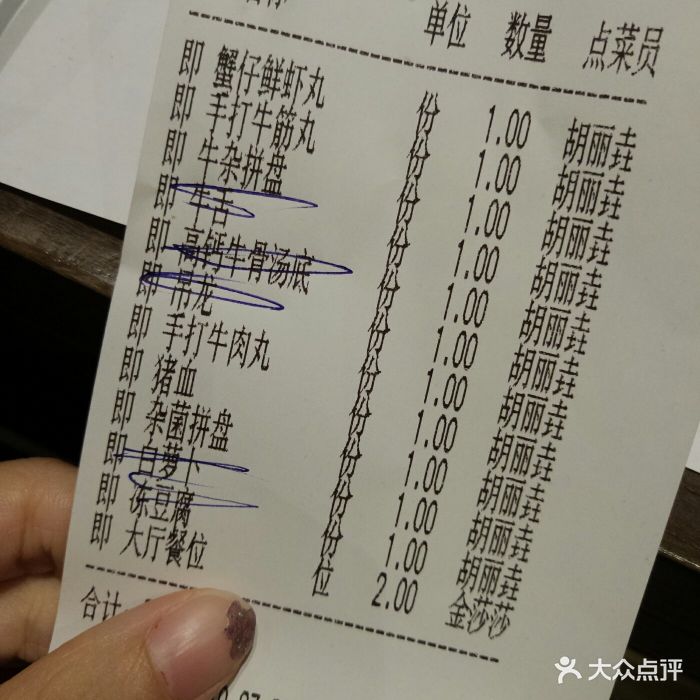 名称 单位 数量 点菜员
即 蟹仔鲜虾丸 份 1.00 胡丽垚
即 手打牛筋丸 份 1.00 胡丽垚
即 牛杂拼盘 份 1.00 胡丽垚
即 牛舌 份 1.00 胡丽垚
即 高钙牛骨汤底 份 1.00 胡丽垚
即 吊龙 份 1.00 胡丽垚
即 手打牛肉丸 份 1.00 胡丽垚
即 猪血 份 1.00 胡丽垚
即 杂菌拼盘 份 1.00 胡丽垚
即 白萝卜 份 1.00 胡丽垚
即 冻豆腐 份 1.00 胡丽垚
即 大厅餐位 位 2.00 金莎莎
合计:
大众点评